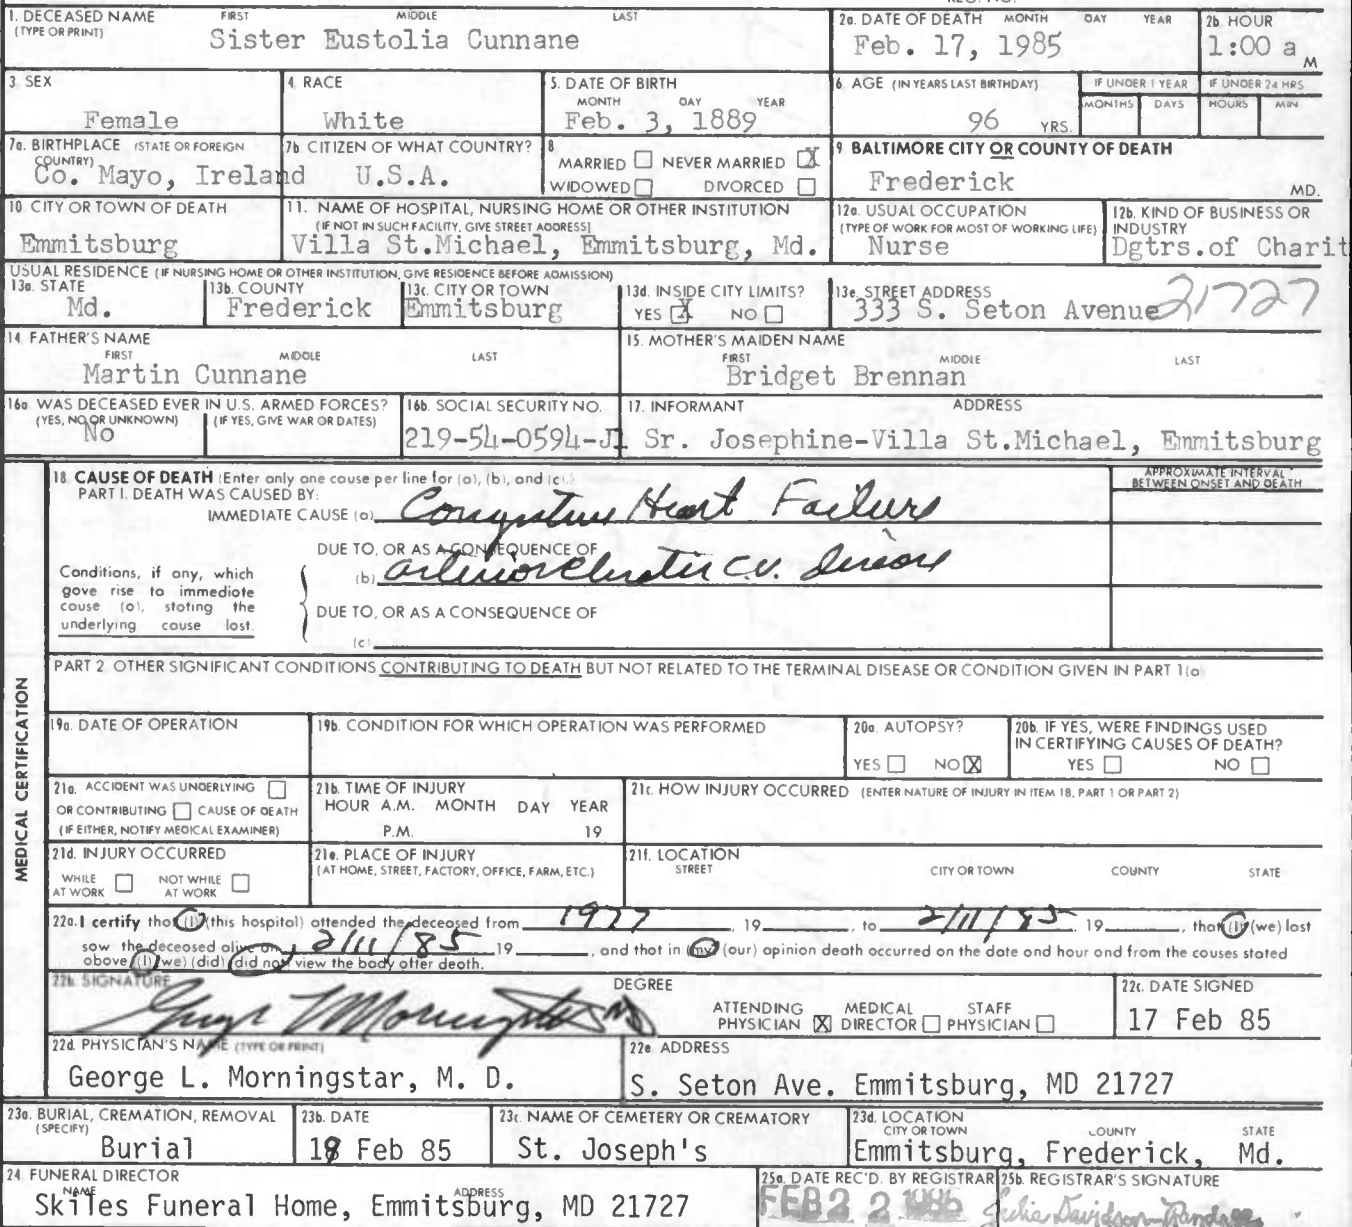 1. DECEASED NAME FIRST MIDDLE LAST
(TYPE OR PRINT)
Sister Eustolia Cunnane
2a. DATE OF DEATH MONTH DAY YEAR
Feb. 17, 1985
2b HOUR
1:00 a M
3 SEX
Female
4. RACE
White
5. DATE OF BIRTH
MONTH DAY YEAR
Feb. 3, 1889
6. AGE (IN YEARS LAST BIRTHDAY)
96 YRS.
IF UNDER 1 YEAR
MONTHS DAYS
IF UNDER 24 HRS
HOURS MIN
7a. BIRTHPLACE (STATE OR FOREIGN
COUNTRY)
Co. Mayo, Ireland
7b CITIZEN OF WHAT COUNTRY?
U.S.A.
8
MARRIED NEVER MARRIED X
WIDOWED DIVORCED
9. BALTIMORE CITY OR COUNTY OF DEATH
Frederick MD.
10. CITY OR TOWN OF DEATH
Emmitsburg
11. NAME OF HOSPITAL, NURSING HOME OR OTHER INSTITUTION
(IF NOT IN SUCH FACILITY, GIVE STREET ADDRESS)
Villa St.Michael, Emmitsburg, Md.
12a. USUAL OCCUPATION
(TYPE OF WORK FOR MOST OF WORKING LIFE)
Nurse
12b. KIND OF BUSINESS OR
INDUSTRY
Dgtrs.of Charit
USUAL RESIDENCE (IF NURSING HOME OR OTHER INSTITUTION, GIVE RESIDENCE BEFORE ADMISSION)
13a. STATE
Md.
13b. COUNTY
Frederick
13c. CITY OR TOWN
Emmitsburg
13d. INSIDE CITY LIMITS?
YES X NO
13e. STREET ADDRESS
333 S. Seton Avenue 21727
14. FATHER'S NAME
FIRST MIDDLE LAST
Martin Cunnane
15. MOTHER'S MAIDEN NAME
FIRST MIDDLE LAST
Bridget Brennan
16a WAS DECEASED EVER IN U.S. ARMED FORCES?
(YES, NO OR UNKNOWN) (IF YES, GIVE WAR OR DATES)
No
16b. SOCIAL SECURITY NO.
219-54-0594-J1
17. INFORMANT ADDRESS
Sr. Josephine-Villa St.Michael, Emmitsburg
MEDICAL CERTIFICATION
18 CAUSE OF DEATH (Enter only one cause per line for (a), (b), and (c).)
APPROXIMATE INTERVAL
BETWEEN ONSET AND DEATH
PART I. DEATH WAS CAUSED BY:
IMMEDIATE CAUSE (a) Congestive Heart Failure
DUE TO, OR AS A CONSEQUENCE OF
(b) arteriosclerotic C.V. disease
Conditions, if any, which
gove rise to immediate
couse (o), stoting the
underlying couse lost.
DUE TO, OR AS A CONSEQUENCE OF
(c)
PART 2 OTHER SIGNIFICANT CONDITIONS CONTRIBUTING TO DEATH BUT NOT RELATED TO THE TERMINAL DISEASE OR CONDITION GIVEN IN PART 1(a)
19a. DATE OF OPERATION
19b. CONDITION FOR WHICH OPERATION WAS PERFORMED
20a. AUTOPSY?
YES NO X
20b. IF YES, WERE FINDINGS USED
IN CERTIFYING CAUSES OF DEATH?
YES NO
21a. ACCIDENT WAS UNDERLYING
OR CONTRIBUTING CAUSE OF DEATH
(IF EITHER, NOTIFY MEDICAL EXAMINER)
21b. TIME OF INJURY
HOUR A.M. MONTH DAY YEAR
P.M. 19
21c. HOW INJURY OCCURRED (ENTER NATURE OF INJURY IN ITEM 18, PART 1 OR PART 2)
21d. INJURY OCCURRED
WHILE AT WORK NOT WHILE AT WORK
21e. PLACE OF INJURY
(AT HOME, STREET, FACTORY, OFFICE, FARM, ETC.)
21f. LOCATION
STREET CITY OR TOWN COUNTY STATE
22a. I certify that (I) (this hospital) attended the deceased from 1977, 19, to 2/11/85 19, that (I) (we) last
saw the deceased alive on 2/11/85 19, and that in (my) (our) opinion death occurred on the date and hour and from the causes stated
above, (I) (we) (did) (did not) view the body after death.
22b. SIGNATURE
George L Morningstar MD
DEGREE
ATTENDING PHYSICIAN X MEDICAL DIRECTOR STAFF PHYSICIAN
22c. DATE SIGNED
17 Feb 85
22d. PHYSICIAN'S NAME (TYPE OR PRINT)
George L. Morningstar, M. D.
22e. ADDRESS
S. Seton Ave. Emmitsburg, MD 21727
23a. BURIAL, CREMATION, REMOVAL
(SPECIFY)
Burial
23b. DATE
18 Feb 85
23c. NAME OF CEMETERY OR CREMATORY
St. Joseph's
23d. LOCATION
CITY OR TOWN COUNTY STATE
Emmitsburg, Frederick, Md.
24. FUNERAL DIRECTOR
NAME ADDRESS
Skiles Funeral Home, Emmitsburg, MD 21727
25a. DATE REC'D. BY REGISTRAR
FEB 22
25b. REGISTRAR'S SIGNATURE
Julia Davidson-Randall